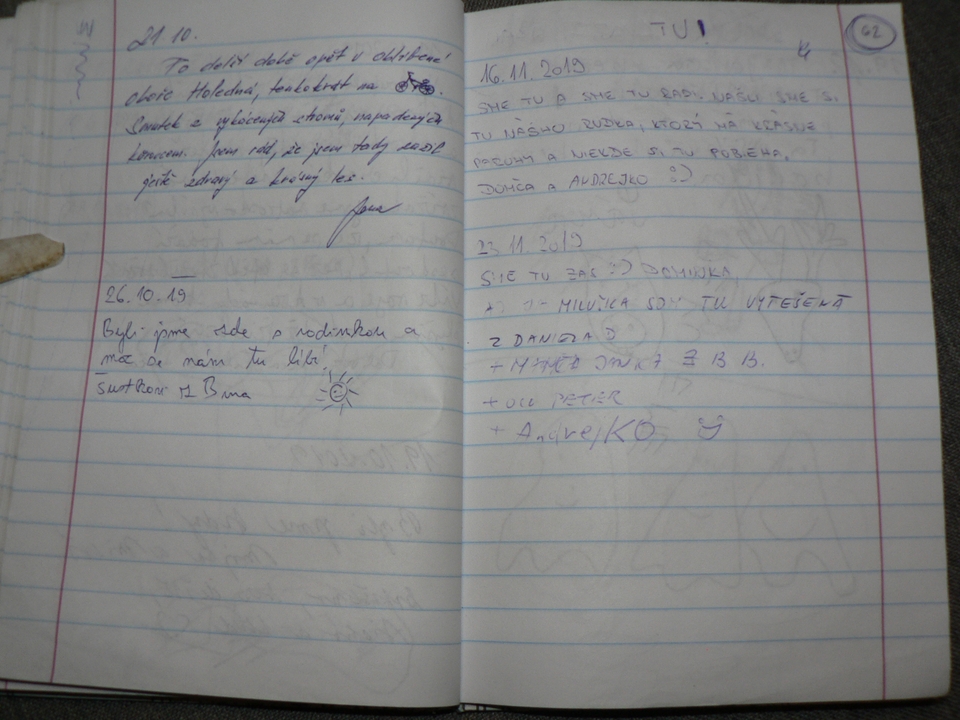 21 10.
Po delší době opět v oblíbené
oboře Holedná, tentokrát na
Smutek z vykácených stromů, napadených
kůrovcem. Jsem rád, že jsem tady zažil
ještě zdravý a krásný les.
Jana
26.10.19
Byli jsme zde s rodinkou a
moc se nám tu líbí!
z Brna
TU!
62
16.11.2019
SME TU A SME TU RADI. NAŠLI SME SI
TU NÁŠHO RUDKA, KTORÝ MÁ KRÁSNE
PAROHY A NIEKDE SI TU POBIEHA.
DOMČA A ANDREJKO :)
23.11.2019
SME TU ZAS :) DOMINIKA
MILUŠKA SOM TU VYTEŠENÁ
Z DANIELA D
+ JANKA Z B B.
+ UJO PETER
+ AndrejKO